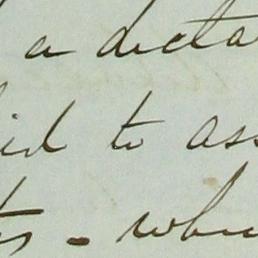 a dicta
id to ass
ts - when